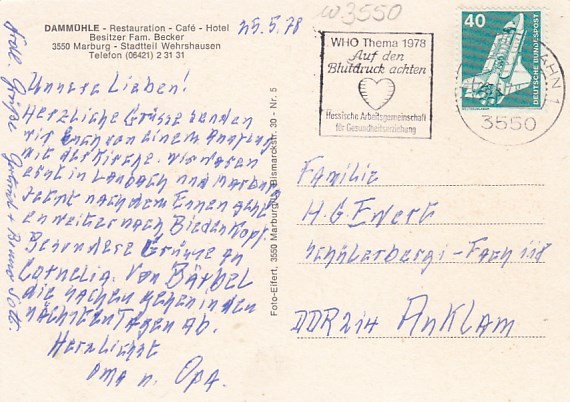 DAMMÜHLE - Restauration - Café - Hotel
Besitzer Fam. Becker
3550 Marburg - Stadtteil Wehrshausen
Telefon (06421) 2 31 31
25.5.78
W 3550
WHO Thema 1978
Auf den
Blutdruck achten
Hessische Arbeitsgemeinschaft
für Gesundheitserziehung
40
DEUTSCHE BUNDESPOST
3550
Unsere Lieben!
Herzliche Grüsse senden
wir Euch von einem Ausflug
mit der Kirche. wir waren
erst in Laubach und Marburg
jetzt nach dem Essen geht
en weiter nach Biedenkopf.
Besondere Grüsse an
Cornelia. Von Bärbel
die Sachen gehen in den
nächsten Tagen ab.
Herzlichst
Oma u. Opa.
Grüße
Foto-Eifert, 3550 Marburg/L., Bismarckstr. 30 - Nr. 5
Familie
H. G. Ewert
DDR 214 Anklam